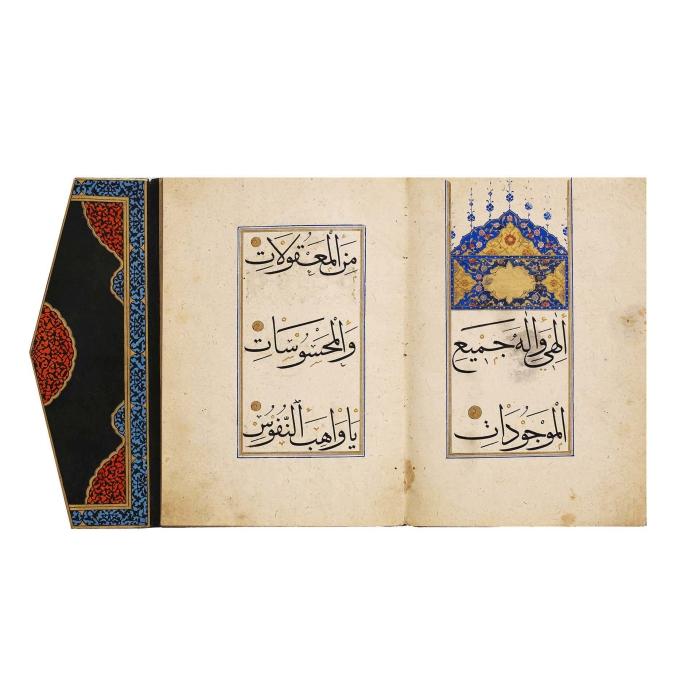 الٰهي وإلٰه جميع
الموجودات
من المعقولات
والمحسوسات
يا واهب النفوس